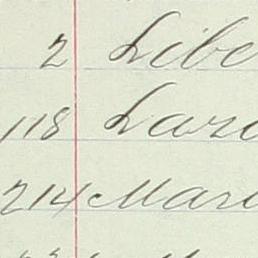 2 Libe
118 Laro
214 Mari